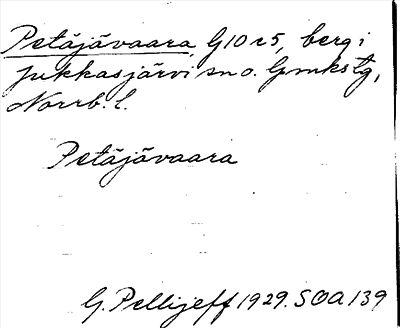 Petäjävaara, G10 r5, berg i
Jukkasjärvi sn o. Gmkstg,
Norrb. l.
Petäjävaara
G. Pellijeff 1929. SOA 139